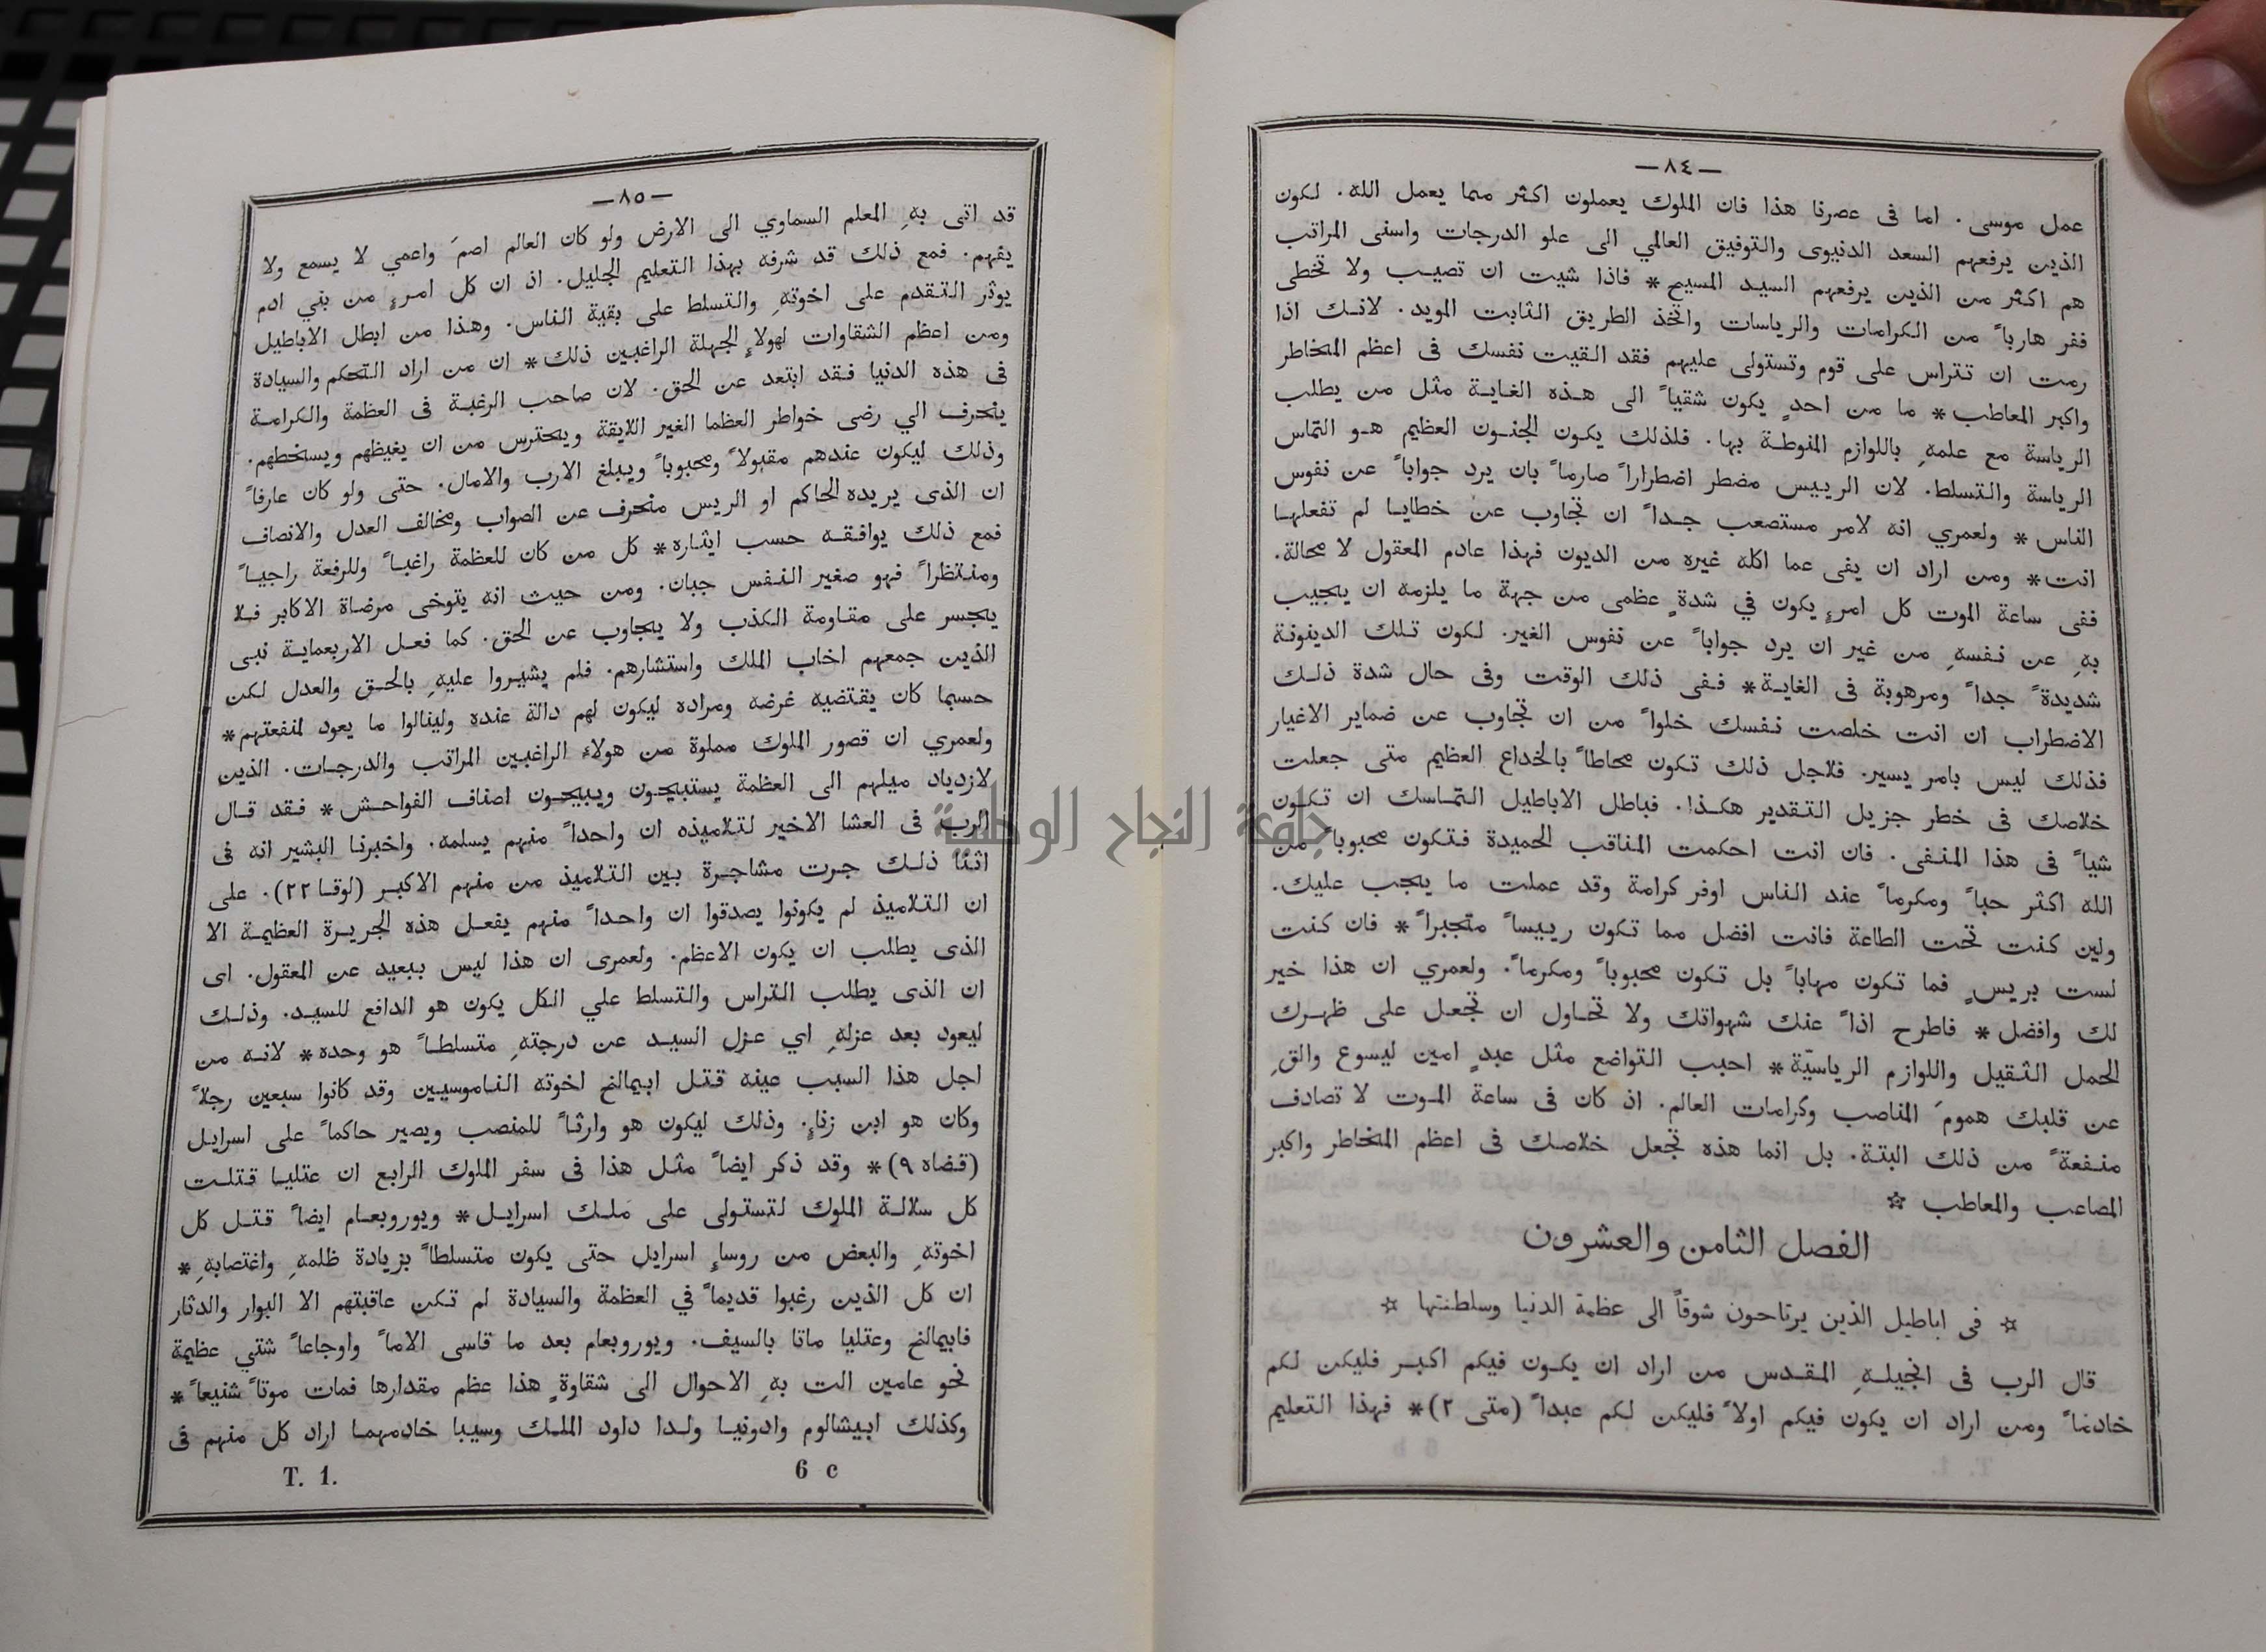 —٨٤—
عمل موسى. اما فى عصرنا هذا فان الملوك يعملون اكثر مما يعمل الله. لكون
الذين يرفعهم السعد الدنيوى والتوفيق العالمي الى علو الدرجات واسنى المراتب
هم اكثر من الذين يرفعهم السيد المسيح* فاذا شيت ان تصيب ولا تخطى
ففر هارباً من الكرامات والرياسات واتخذ الطريق الثابت المويد. لانك اذا
رمت ان تتراس على قوم وتستولى عليهم فقد القيت نفسك فى اعظم المخاطر
واكبر المعاطب* ما من احدٍ يكون شقياً الى هذه الغاية مثل من يطلب
الرياسة مع علمهِ باللوازم المنوطة بها. فلذلك يكون الجنون العظيم هو التماس
الرياسة والتسلط. لان الرييس مضطر اضطراراً صارماً بان يرد جواباً عن نفوس
الناس* ولعمري انه لامر مستصعب جداً ان تجاوب عن خطايا لم تفعلها
انت* ومن اراد ان يفى عما اكله غيره من الديون فهذا عادم المعقول لا محالة.
ففى ساعة الموت كل امرءٍ يكون في شدةٍ عظمى من جهة ما يلزمه ان يجيب
بهِ عن نفسهِ من غير ان يرد جواباً عن نفوس الغير. لكون تلك الدينونة
شديدةً جداً ومرهوبة فى الغاية* ففى ذلك الوقت وفى حال شدة ذلك
الاضطراب ان انت خلصت نفسك خلواً من ان تجاوب عن ضماير الاغيار
فذلك ليس بامر يسير. فلاجل ذلك تكون محاطاً بالخداع العظيم متى جعلت
خلاصك فى خطر جزيل التقدير هكذا. فباطل الاباطيل التماسك ان تكون
شياً فى هذا المنفى. فان انت احكمت المناقب الحميدة فتكون محبوباً من
الله اكثر حباً ومكرماً عند الناس اوفر كرامة وقد عملت ما يجب عليك.
ولين كنت تحت الطاعة فانت افضل مما تكون رييساً متجبراً* فان كنت
لست بريسٍ فما تكون مهاباً بل تكون محبوباً ومكرماً. ولعمري ان هذا خير
لك وافضل* فاطرح اذاً عنك شهواتك ولا تحاول ان تجعل على ظهرك
الحمل الثقيل واللوازم الرياسيّة* احبب التواضع مثل عبدٍ امين ليسوع والقِ
عن قلبك همومَ المناصب وكرامات العالم. اذ كان فى ساعة الموت لا تصادف
منفعةً من ذلك البتة. بل انما هذه تجعل خلاصك فى اعظم المخاطر واكبر
المصاعب والمعاطب ☆
الفصل الثامن والعشرون
☆ فى اباطيل الذين يرتاحون شوقاً الى عظمة الدنيا وسلطنتها ☆
قال الرب فى انجيلهِ المقدس من اراد ان يكون فيكم اكبر فليكن لكم
خادماً ومن اراد ان يكون فيكم اولاً فليكن لكم عبداً (متى ٢)* فهذا التعليم
—٨٥—
قد اتى بهِ المعلم السماوي الى الارض ولو كان العالم اصمَ واعمي لا يسمع ولا
يفهم. فمع ذلك قد شرفه بهذا التعليم الجليل. اذ ان كل امرءٍ من بني ادم
يوثر التقدم على اخوتهِ والتسلط على بقية الناس. وهذا من ابطل الاباطيل
ومن اعظم الشقاوات لهولاءِ الجهلة الراغبين ذلك* ان من اراد التحكم والسيادة
فى هذه الدنيا فقد ابتعد عن الحق. لان صاحب الرغبة فى العظمة والكرامة
ينحرف الي رضى خواطر العظما الغير اللايقة ويحترس من ان يغيظهم ويسخطهم.
وذلك ليكون عندهم مقبولاً ومحبوباً ويبلغ الارب والامال. حتى ولو كان عارفاً
ان الذى يريده الحاكم او الريس منحرف عن الصواب ومخالف العدل والانصاف
فمع ذلك يوافقه حسب ايثاره* كل من كان للعظمة راغباً وللرفعة راجياً
ومنتظراً فهو صغير النفس جبان. ومن حيث انه يتوخى مرضاة الاكابر فلا
يجسر على مقاومة الكذب ولا يجاوب عن الحق. كما فعل الاربعماية نبى
الذين جمعهم اخاب الملك واستشارهم. فلم يشيروا عليهِ بالحق والعدل لكن
حسبما كان يقتضيه غرضه ومراده ليكون لهم دالة عنده ولينالوا ما يعود لمنفعتهم*
ولعمري ان قصور الملوك مملوة من هولاء الراغبين المراتب والدرجات. الذين
لازدياد ميلهم الى العظمة يستبيحون ويبيحون اصناف الفواحش* فقد قال
الرب فى العشا الاخير لتلاميذه ان واحداً منهم يسلمه. واخبرنا البشير انه فى
اثنا ذلك جرت مشاجرة بين التلاميذ من منهم الاكبر (لوقا ٢٢). على
ان التلاميذ لم يكونوا يصدقوا ان واحداً منهم يفعل هذه الجريرة العظيمة الا
الذى يطلب ان يكون الاعظم. ولعمرى ان هذا ليس ببعيد عن المعقول. اى
ان الذى يطلب التراس والتسلط علي الكل يكون هو الدافع للسيد. وذلك
ليعود بعد عزلهِ اي عزل السيد عن درجتهِ متسلطاً هو وحده* لانه من
اجل هذا السبب عينه قتل ابيمالخ اخوته الناموسيين وقد كانوا سبعين رجلاً
وكان هو ابن زناءٍ. وذلك ليكون هو وارثاً للمنصب ويصير حاكماً على اسرايل
(قضاه ٩)* وقد ذكر ايضاً مثل هذا فى سفر الملوك الرابع ان عتليا قتلت
كل سلالة الملوك لتستولى على ملك اسرايل* ويوروبعام ايضاً قتل كل
اخوتهِ والبعض من روساءِ اسرايل حتى يكون متسلطاً بزيادة ظلمهِ واغتصابهِ*
ان كل الذين رغبوا قديماً في العظمة والسيادة لم تكن عاقبتهم الا البوار والدثار
فابيمالخ وعتليا ماتا بالسيف. ويوروبعام بعد ما قاسى الاماً واوجاعاً شتي عظيمة
نحو عامين الت بهِ الاحوال الى شقاوةٍ هذا عظم مقدارها فمات موتاً شنيعاً*
وكذلك ابيشالوم وادونيا ولدا داود الملك وسيبا خادمهما اراد كل منهم فى
T. 1. 6 c
جامعة النجاح الوطنية